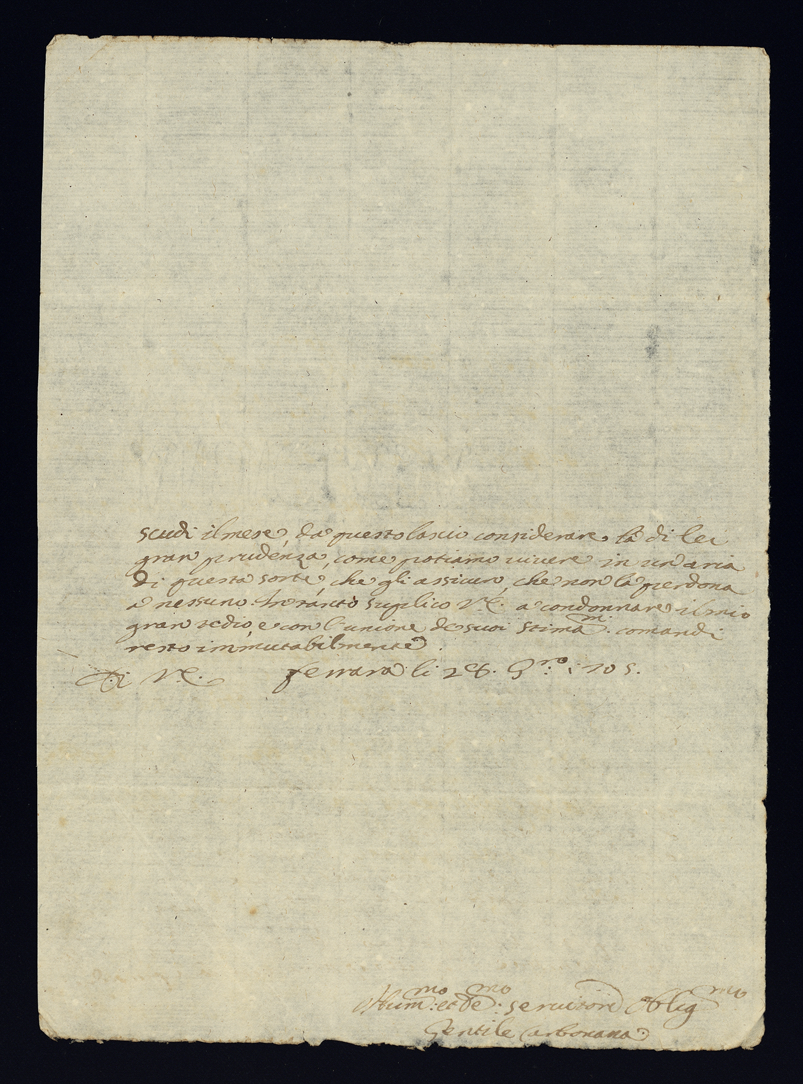 scudi il mese, da questo lascio considerare la di lei
gran prudenza, come potiamo vivere in un'aria
di questa sorte, che gli assicuro, che non la perdona
a nessuno. Intanto suplico V.E. a condonnare il mio
gran tedio, e con l'unione de suoi stima.mi comandi
resto immutabilmente.
Di V.E. ferrara li 28. 9.ro. 705.
Hum.mo et De.mo servitore Oblig.mo
Gentile Carbonana